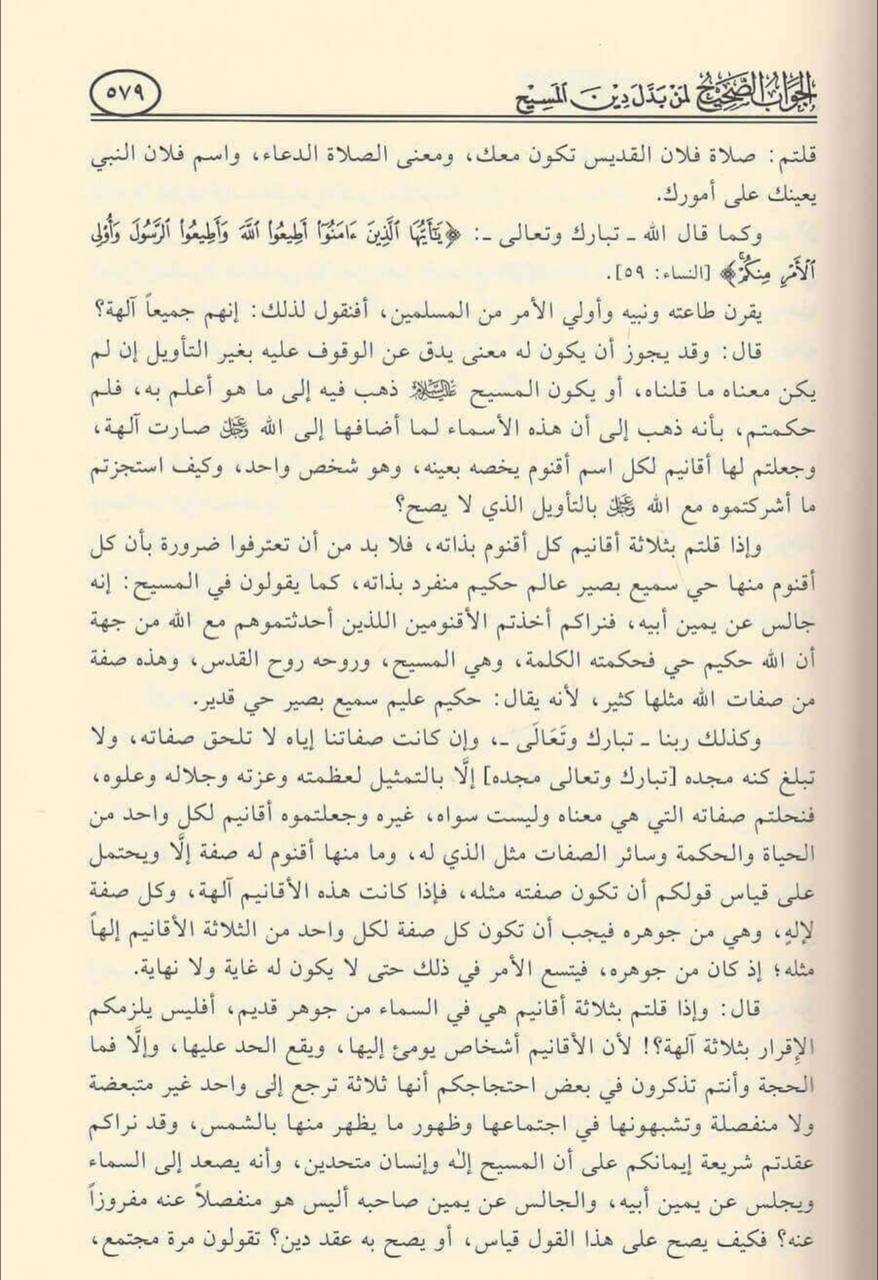 الجواب الصحيح لمن بدل دين المسيح
٥٧٩
قلتم: صلاة فلان القديس تكون معك، ومعنى الصلاة الدعاء، واسم فلان النبي
يعينك على أمورك.
وكما قال الله ـ تبارك وتعالى ـ: ﴿يَٰٓأَيُّهَا ٱلَّذِينَ ءَامَنُوٓا۟ أَطِيعُوا۟ ٱللَّهَ وَأَطِيعُوا۟ ٱلرَّسُولَ وَأُو۟لِى
ٱلْأَمْرِ مِنكُمْ﴾ [النساء: ٥٩].
يقرن طاعته ونبيه وأولي الأمر من المسلمين، أفنقول لذلك: إنهم جميعاً آلهة؟
قال: وقد يجوز أن يكون له معنى يدق عن الوقوف عليه بغير التأويل إن لم
يكن معناه ما قلناه، أو يكون المسيح عليه السلام ذهب فيه إلى ما هو أعلم به، فلم
حكمتم، بأنه ذهب إلى أن هذه الأسماء لما أضافها إلى الله عز وجل صارت آلهة،
وجعلتم لها أقانيم لكل اسم أقنوم يخصه بعينه، وهو شخص واحد، وكيف استجزتم
ما أشركتموه مع الله عز وجل بالتأويل الذي لا يصح؟
وإذا قلتم بثلاثة أقانيم كل أقنوم بذاته، فلا بد من أن تعترفوا ضرورة بأن كل
أقنوم منها حي سميع بصير عالم حكيم منفرد بذاته، كما يقولون في المسيح: إنه
جالس عن يمين أبيه، فنراكم أخذتم الأقنومين اللذين أحدثتموهم مع الله من جهة
أن الله حكيم حي فحكمته الكلمة، وهي المسيح، وروحه روح القدس، وهذه صفة
من صفات الله مثلها كثير، لأنه يقال: حكيم عليم سميع بصير حي قدير.
وكذلك ربنا ـ تبارك وتَعَالَى ـ، وإن كانت صفاتنا إياه لا تلحق صفاته، ولا
تبلغ كنه مجده [تبارك وتعالى مجده] إلَّا بالتمثيل لعظمته وعزته وجلاله وعلوه،
فنحلتم صفاته التي هي معناه وليست سواه، غيره وجعلتموه أقانيم لكل واحد من
الحياة والحكمة وسائر الصفات مثل الذي له، وما منها أقنوم له صفة إلَّا ويحتمل
على قياس قولكم أن تكون صفته مثله، فإذا كانت هذه الأقانيم آلهة، وكل صفة
لإلهٍ، وهي من جوهره فيجب أن تكون كل صفة لكل واحد من الثلاثة الأقانيم إلهاً
مثله؛ إذ كان من جوهره، فيتسع الأمر في ذلك حتى لا يكون له غاية ولا نهاية.
قال: وإذا قلتم بثلاثة أقانيم هي في السماء من جوهر قديم، أفليس يلزمكم
الإقرار بثلاثة آلهة؟! لأن الأقانيم أشخاص يومئ إليها، ويقع الحد عليها، وإلَّا فما
الحجة وأنتم تذكرون في بعض احتجاجكم أنها ثلاثة ترجع إلى واحد غير متبعضة
ولا منفصلة وتشبهونها في اجتماعها وظهور ما يظهر منها بالشمس، وقد نراكم
عقدتم شريعة إيمانكم على أن المسيح إلٰه وإنسان متحدين، وأنه يصعد إلى السماء
ويجلس عن يمين أبيه، والجالس عن يمين صاحبه أليس هو منفصلاً عنه مفروزاً
عنه؟ فكيف يصح على هذا القول قياس، أو يصح به عقد دين؟ تقولون مرة مجتمع،